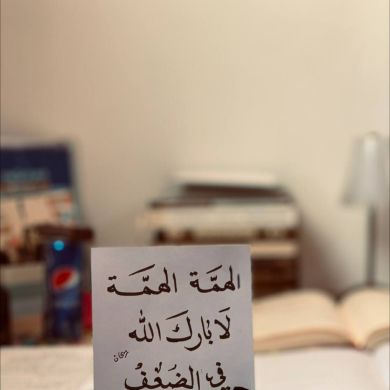 الهمَّة الهمَّـة
لَا بَارَكَ الله
في الضُعْفُ